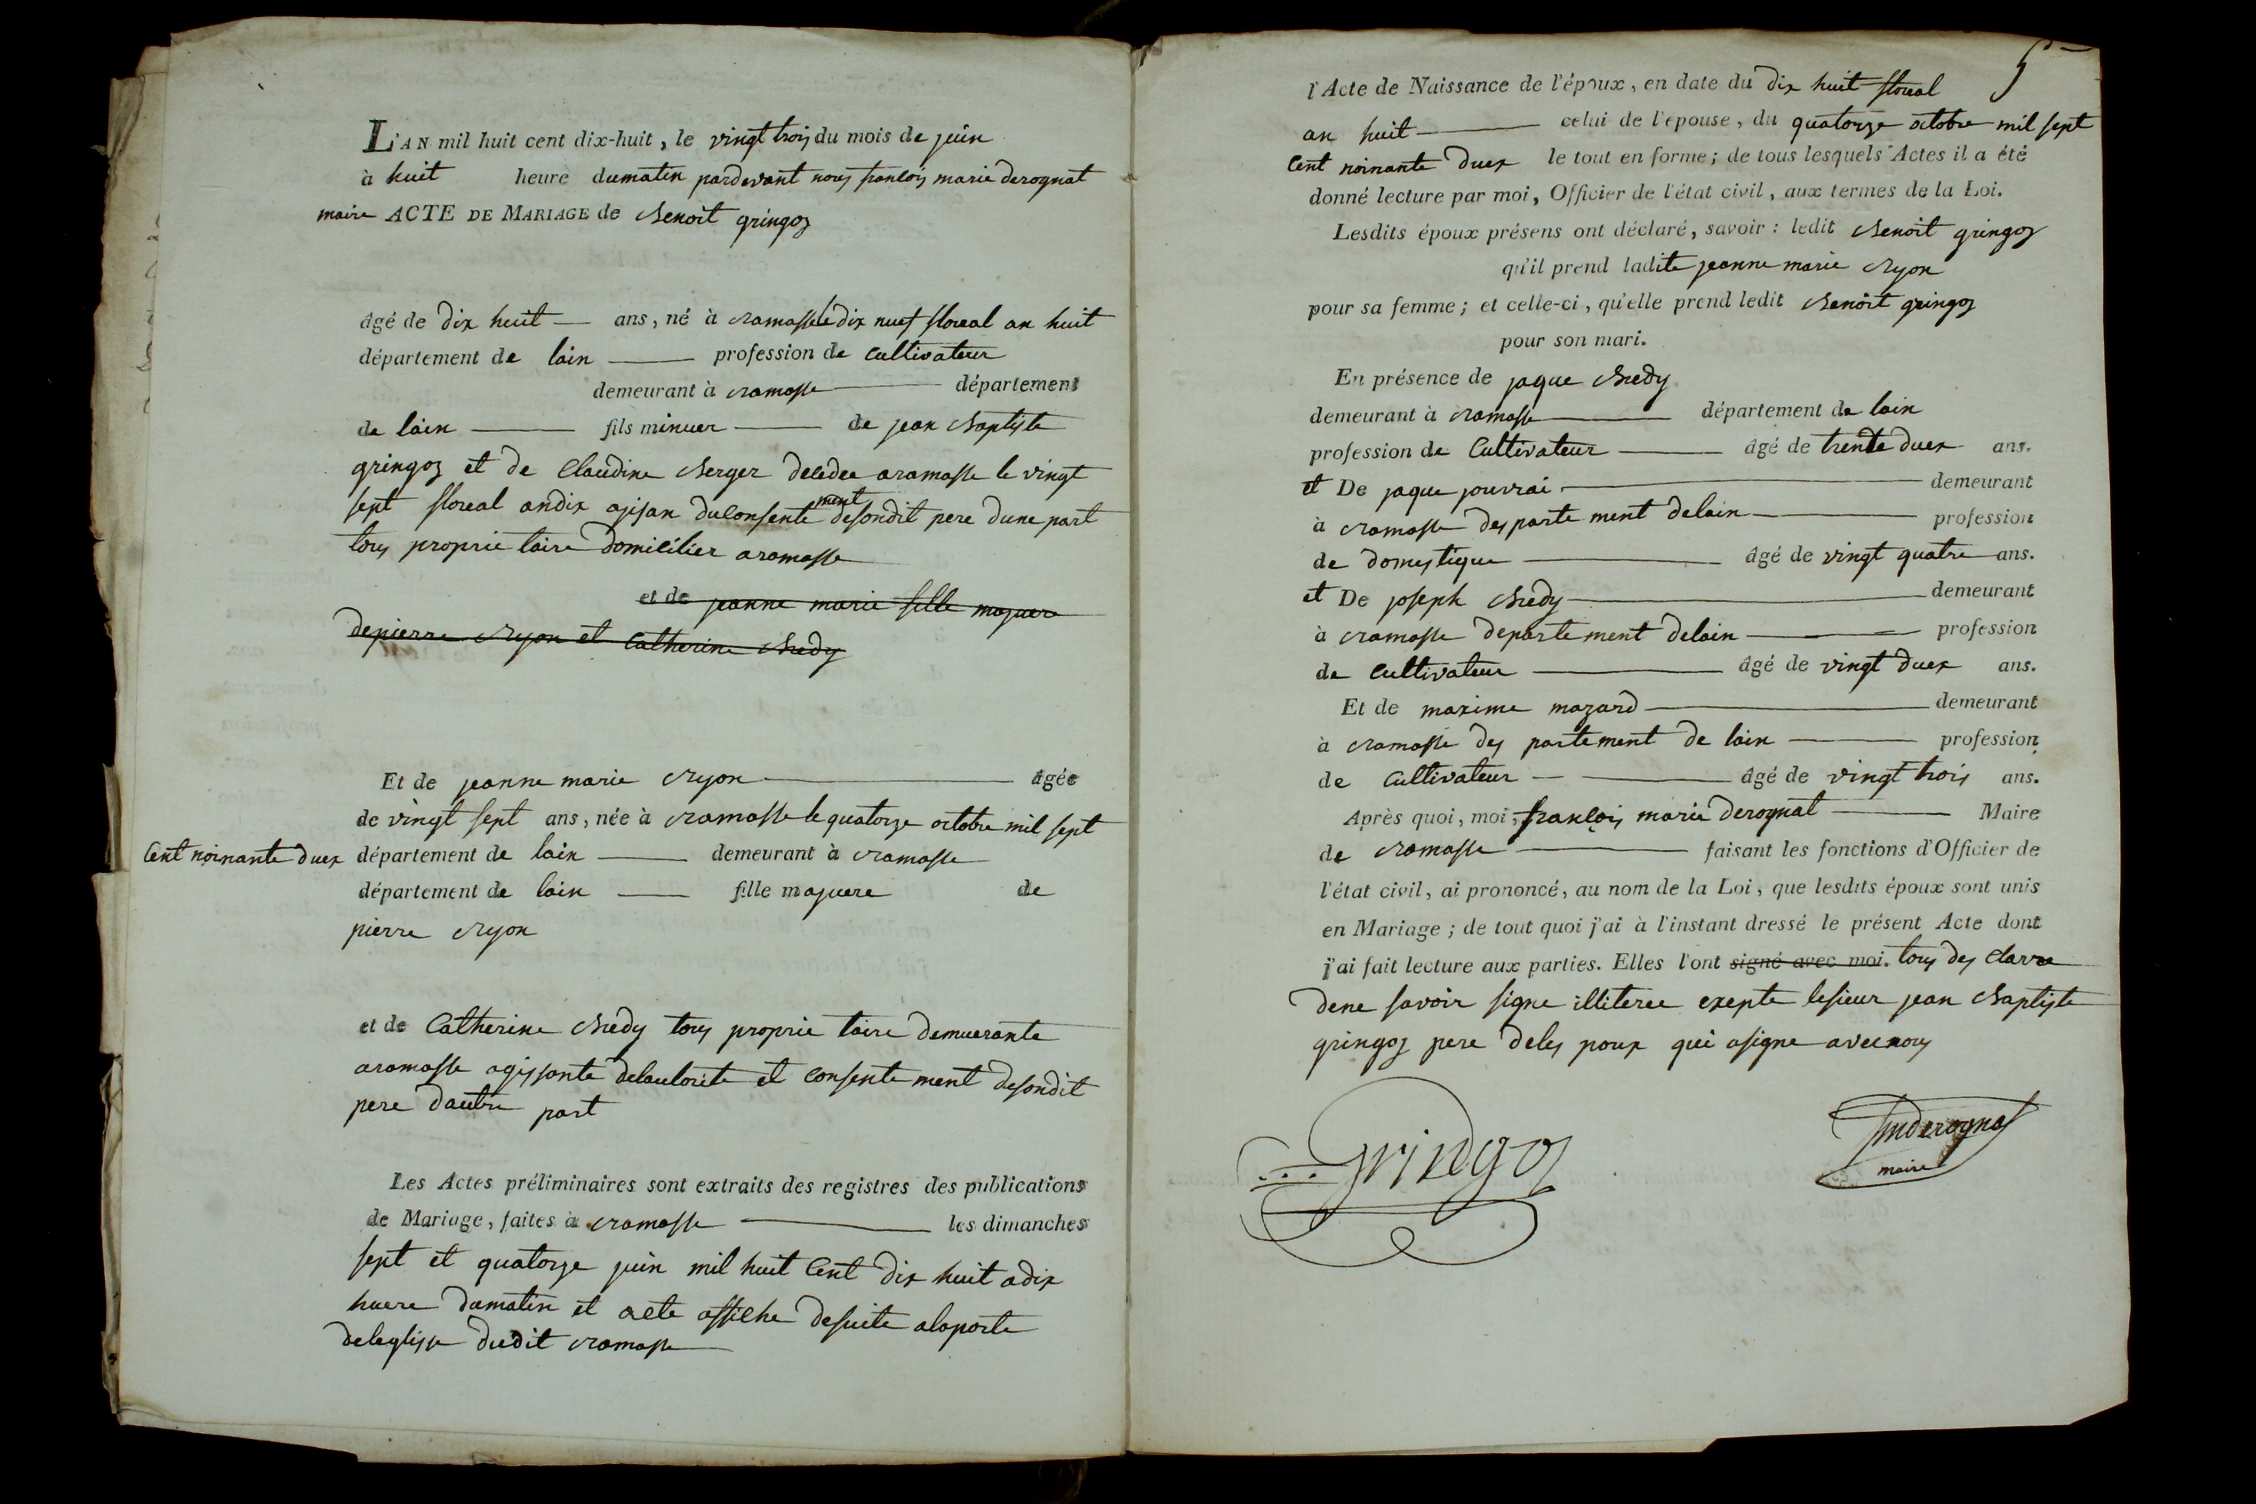 L'AN mil huit cent dix-huit, le vingt trois du mois de juin
à huit heure dumatin pardevant nous francois marie derognat
maire ACTE DE MARIAGE de Benoit gringoz
âgé de dix huit ans, né à cramasse le dix nuef floreal an huit
département de lain profession de Cultivateur
demeurant à cramasse département
de lain fils minuer de jean Baptiste
gringoz et de Claudine Berger decedee aramasse le vingt
sept floreal andix agisan duConsentement desondit pere dune part
tous proprie taire domicilier aramasse
et de jeanne marie fille majuere
depierre Ryon et Catherine Bredy
Et de jeanne marie Ryon âgée
de vingt sept ans, née à cramasse le quatorze octobre mil sept
Cent noinante duex département de lain demeurant à cramasse
département de lain fille majuere de
pierre Ryon
et de Catherine Bredy tous proprie taire demuerante
aramasse agissante delautorite et Consentement desondit
pere dautre part
Les Actes préliminaires sont extraits des registres des publications
de Mariage, faites à cramasse les dimanches
sept et quatorze juin mil huit Cent dix huit adix
huere dumatin et acte affiche desuite alaporte
deleglisse dudit cramasse
5
l'Acte de Naissance de l'époux, en date du dix huit floreal
an huit celui de l'epouse, du quatorze octobre mil sept
Cent noinante duex le tout en forme; de tous lesquels Actes il a été
donné lecture par moi, Officier de l'état civil, aux termes de la Loi.
Lesdits époux présens ont déclaré, savoir: ledit Benoit gringoz
qu'il prend ladite jeanne marie Ryon
pour sa femme; et celle-ci, qu'elle prend ledit Benoit gringoz
pour son mari.
En présence de jaque Bredy
demeurant à cramasse département de lain
profession de Cultivateur âgé de trente duex ans.
et De jaque jouvrai demeurant
à cramasse des parte ment delain profession
de domestique âgé de vingt quatre ans.
et De joseph Bredy demeurant
à cramasse departe ment delain profession
de Cultivateur âgé de vingt duex ans.
Et de maxime mazard demeurant
à cramasse des partement de lain profession
de Cultivateur âgé de vingt trois ans.
Après quoi, moi, françois marie derognat Maire
de cramasse faisant les fonctions d'Officier de
l'état civil, ai prononcé, au nom de la Loi, que lesdits époux sont unis
en Mariage; de tout quoi j'ai à l'instant dressé le présent Acte dont
j'ai fait lecture aux parties. Elles l'ont signé avec moi. tous des Clarre
dene savoir signe illiteree exepte lesieur jean Baptiste
gringoz pere deles poux qui asigne avecnous
Gringoz
fmderognat
maire